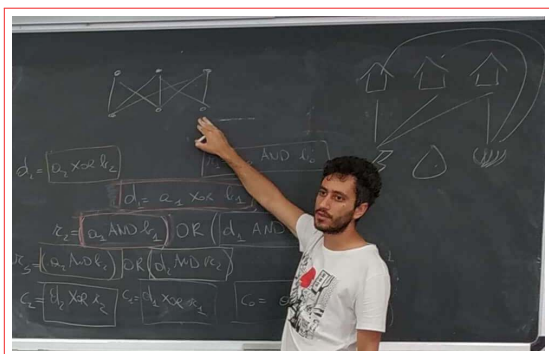 d₁= a₂ XOR b₂
AND b₀
d₁= a₁ XOR b₁
r₂= (a₁ AND b₁) OR (d₁ AND
r₃= (a₂ AND b₂) OR (d₂ AND r₂)
c₂= d₂ XOR r₂ c₁= d₁ XOR r₁ c₀=